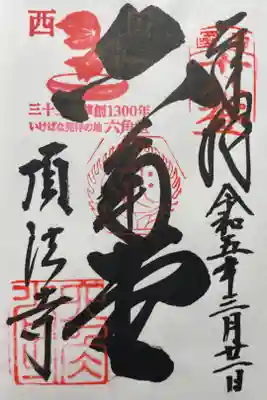 奉拝
令和五年三月廿一日
西国
三十三所草創1300年
いけばな発祥の地 六角堂
六角堂
頂法寺